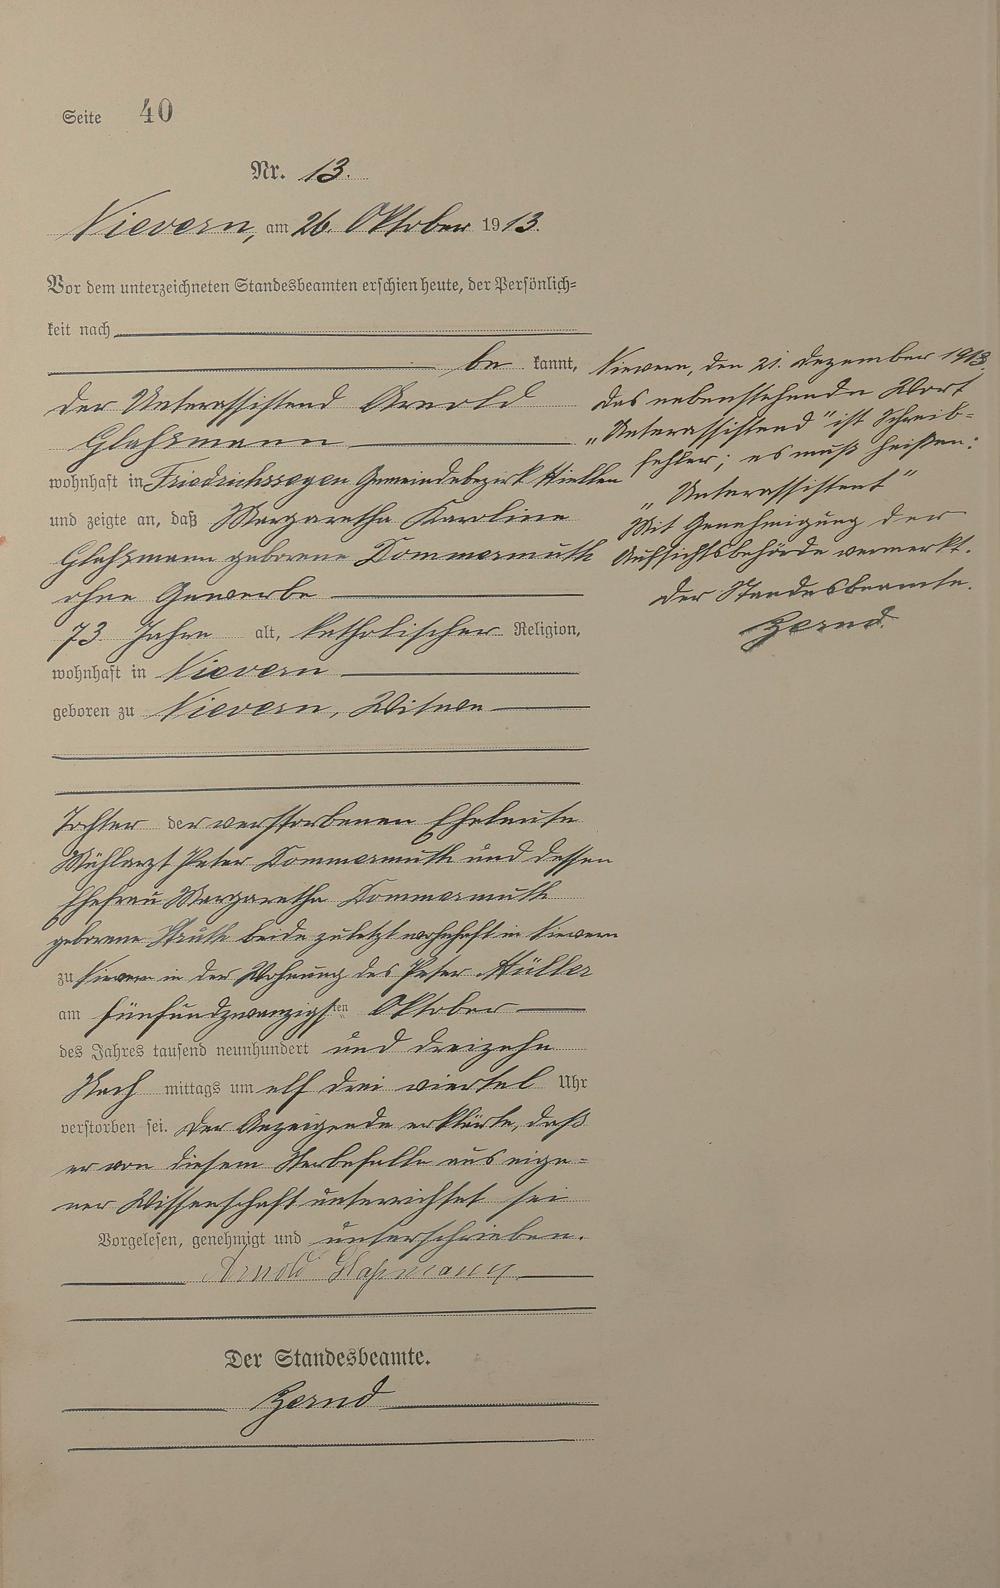 Seite 40
Nr. 13.
Nievern, am 26. Oktober 1913.
Vor dem unterzeichneten Standesbeamten erschien heute, der Persönlich=
keit nach
be kannt,
der Unterassistend Arnold
Glaßmann
wohnhaft in Friedrichssegen Gemeindebezirk
und zeigte an, daß Margaretha Karoline
Glaßmann geborene Dommermuth
ohne Gewerbe
73 Jahre alt, katholischer Religion,
wohnhaft in Nievern
geboren zu Nievern, Witwe
Tochter der verstorbenen Eheleute
Mühlarzt Peter Dommermuth und dessen
Ehefrau Margaretha Dommermuth
geborene Struth beide zuletzt wohnhaft in Nievern
zu Nievern in der Wohnung des Peter Müller
am fünfundzwanzigsten Oktober
des Jahres tausend neunhundert und dreizehn
Nach mittags um elf drei viertel Uhr
verstorben sei. Der Anzeigende erklärte, daß
er von diesem Sterbefalle aus eige=
ner Wissenschaft unterrichtet sei
Vorgelesen, genehmigt und unterschrieben.
Arnold Glaßmann
Der Standesbeamte.
Zernd
Nievern, den 21. Dezember 1913.
Das nebenstehende Wort
„Unterassistend" ist Schreib-
fehler; es muß heißen:
„Unterassistent"
Mit Genehmigung der
Aufsichtsbehörde vermerkt.
Der Standesbeamte.
Zernd.